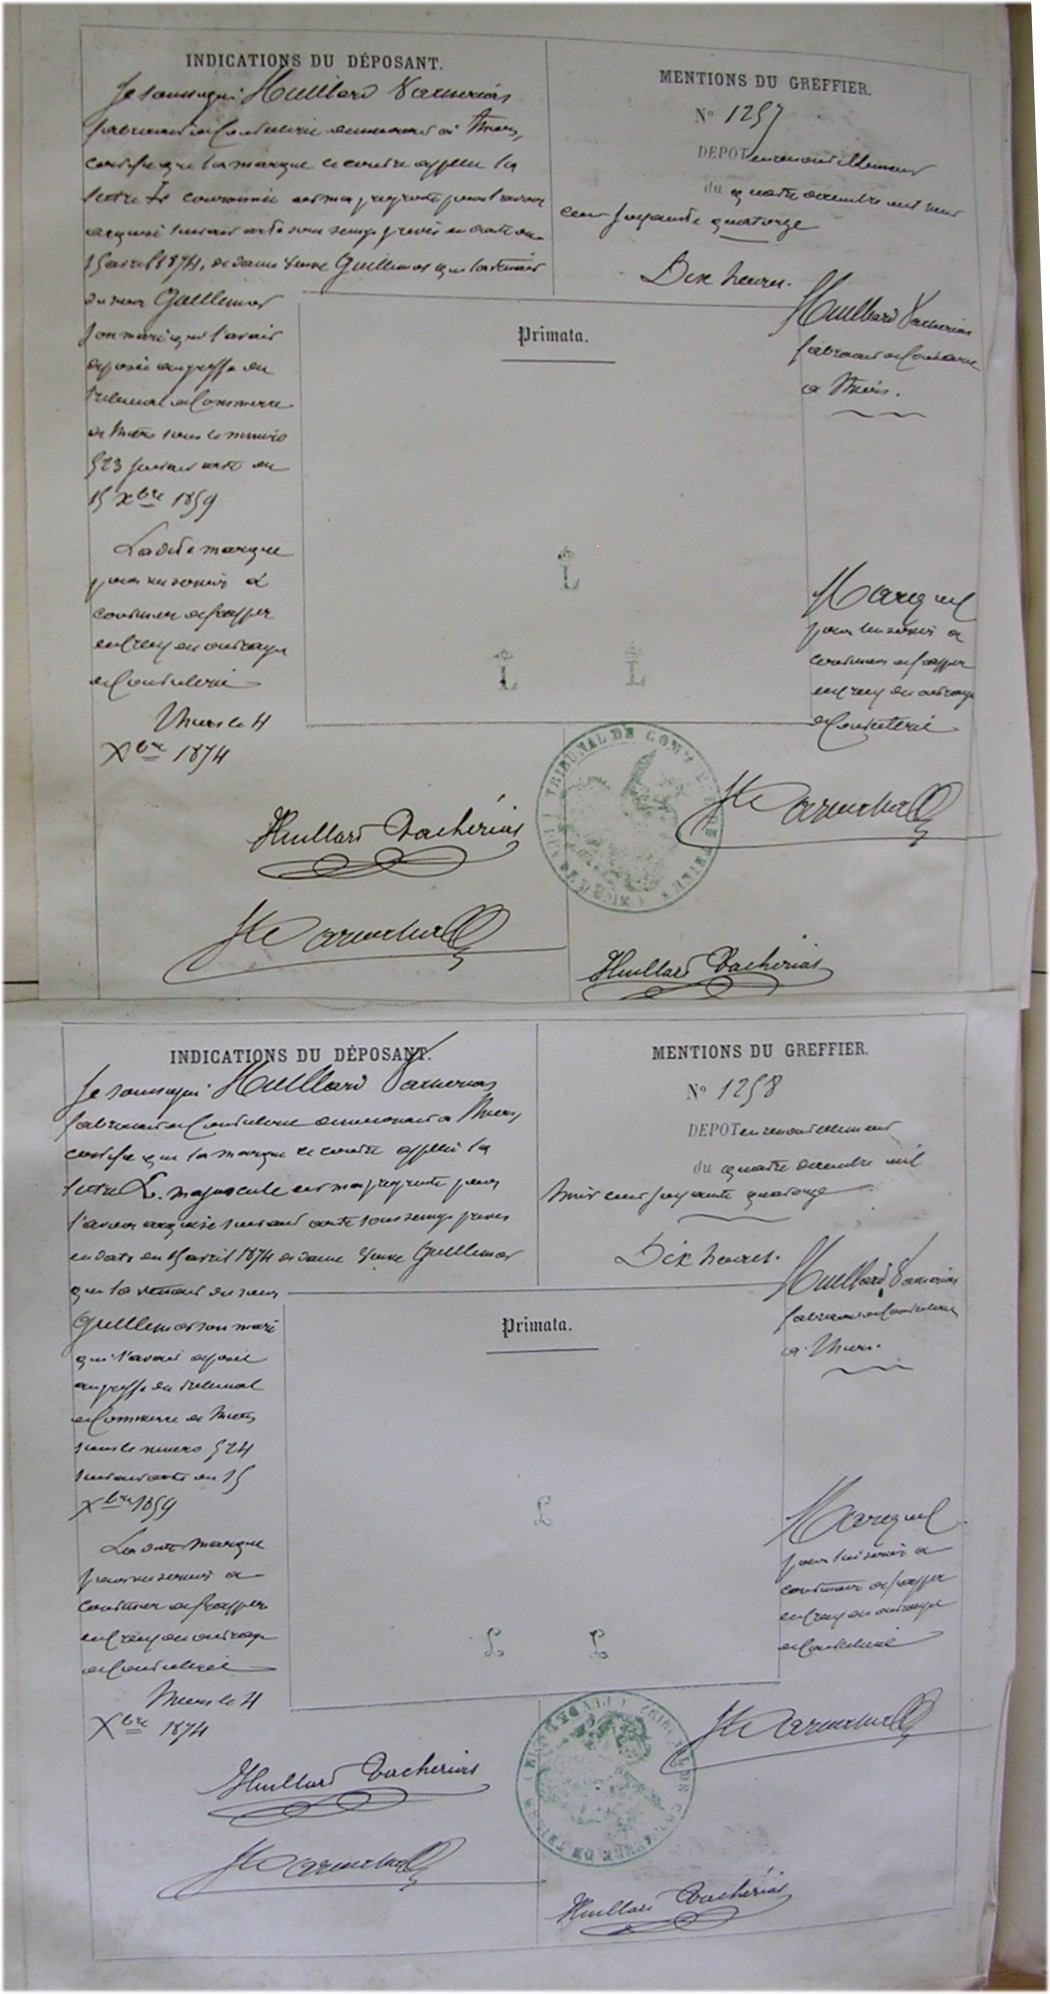 INDICATIONS DU DÉPOSANT.
Je soussigné Huillard Vacherias
fabricant de Coutellerie demeurant à Thiers,
certifie que la marque ci contre appelée la
lettre L couronnée est ma propriété pour l'avoir
acquise suivant acte sous seings privés en date du
15 avril 1874, de dame Veuve Guillemot qui la tenait
du sieur Guillemot
son mari qui l'avait
déposée au greffe du
tribunal de Commerce
de Thiers sous le numéro
523 suivant acte du
15 Xbre 1859
La dite marque
pour
continuer de frapper
ouvrages
de Coutellerie
Thiers le 4
Xbre 1874
Huillard Vacherias
MENTIONS DU GREFFIER.
No 1257
DEPOT en renouvellement
du quatre décembre mil huit
cent soixante quatorze
Dix heures.
Primata.
Huillard Vacherias
fabricant de Coutellerie
à Thiers.
L
L L
Marque
pour lui servir à
continuer de frapper
ouvrages
de Coutellerie
TRIBUNAL DE COMMERCE DE THIERS
Huillard Vacherias
INDICATIONS DU DÉPOSANT.
Je soussigné Huillard Vacherias
fabricant de Coutellerie demeurant à Thiers
certifie que la marque ci contre appelée la
lettre L. majuscule est ma propriété pour
l'avoir acquise suivant acte sous seings privés
en date du 15 avril 1874 de dame Veuve Guillemot
qui la tenait du sieur
Guillemot son mari
qui l'avait déposée
au greffe du tribunal
de Commerce de Thiers
sous le numéro 524
suivant acte du 15
Xbre 1859
La dite marque
pour
continuer de frapper
ouvrages
de Coutellerie
Thiers le 4
Xbre 1874
Huillard Vacherias
MENTIONS DU GREFFIER.
No 1258
DEPOT en renouvellement
du quatre décembre mil
huit cent soixante quatorze
Dix heures.
Primata.
Huillard Vacherias
fabricant de Coutellerie
à Thiers.
L
L L
Marque
pour lui servir à
continuer de frapper
ouvrages
de Coutellerie
TRIBUNAL DE COMMERCE DE THIERS
Huillard Vacherias